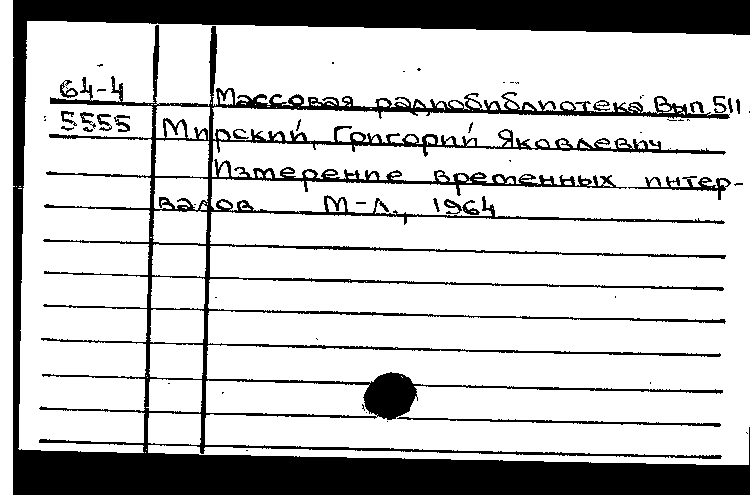 64-4 Массовая радиобиблиотека Вып. 511.
5555 Мирский, Григорий Яковлевич
Измерение временных интер-
валов М-Л., 1964